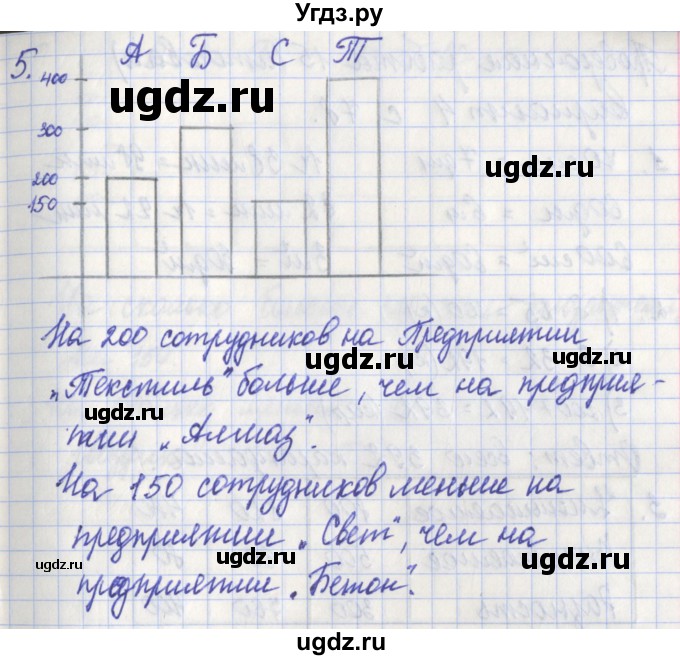 Угдз.ру
5. А Б С Т
400
300
200
150
ugdz.ru
ugdz.ru
ugdz.ru
На 200 сотрудников на Предприятии
ugdz.ru
„Текстиль" больше, чем на предприя-
ugdz.ru
тии „Алмаз".
На 150 сотрудников меньше на
предприятии „Свет", чем на
ugdz.ru
ugdz.ru
предприятие „Бетон".
ugdz.ru
ugdz.ru